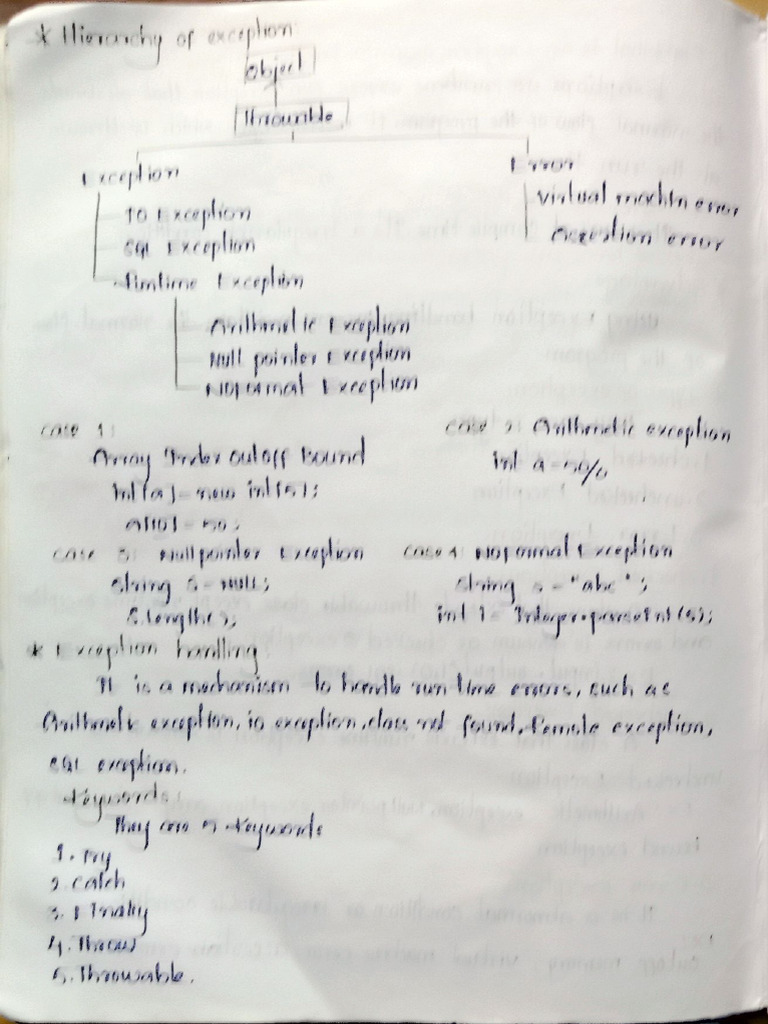 * Hierarchy of exception
Object
Throwable
Exception
Error
IO Exception
Virtual machin error
SQL Exception
Assertion error
Runtime Exception
Arithmetic Exception
Null pointer Exception
NoFormat Exception
case 1:
case 2: Arithmetic exception
Array Index outoff Bound
int a = 50/0
int[a] = new int(5);
a[10] = 50;
case 3: Nullpointer Exception
case 4: NoFormat Exception
String s = NULL;
String s = "abc";
S.length();
int i = Integer.parseInt(s);
* Exception handling
It is a mechanism to handle run time errors, such as
Arithmetic exception, io exception, class not found, Remote exception,
SQL exception.
Keywords:
They are 5 keywords
1. try
2. catch
3. Finally
4. Throw
5. Throwable.